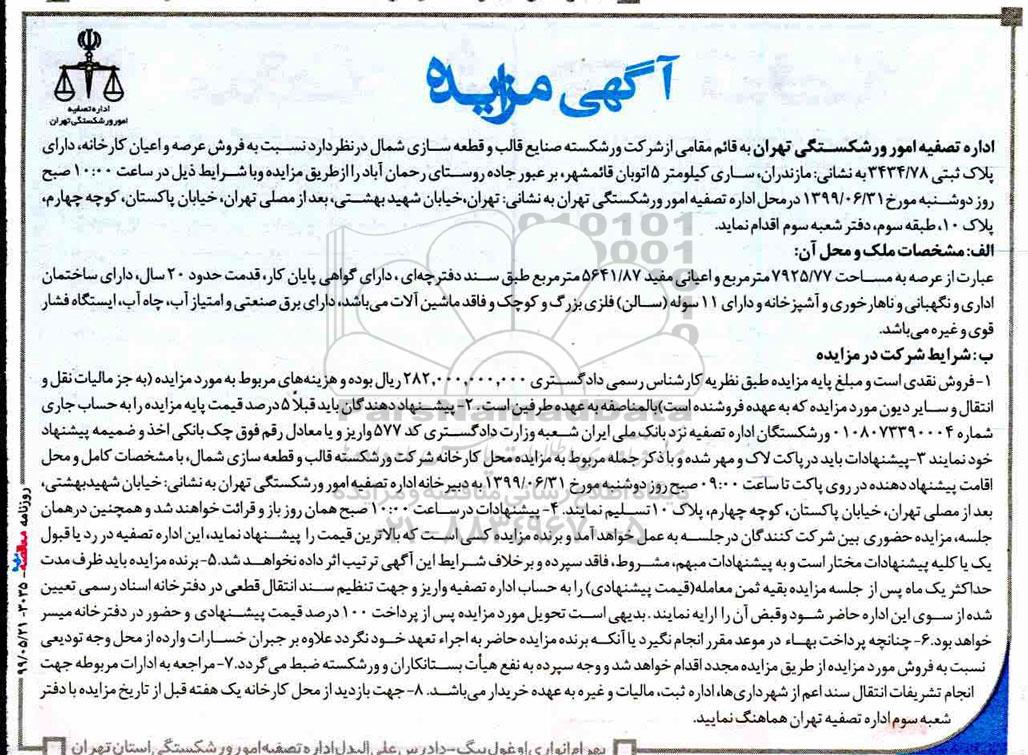 آگهی مزایده
اداره تصفیه
امور ورشکستگی تهران
اداره تصفیه امور ورشکستگی تهران به قائم مقامی از شرکت ورشکسته صنایع قالب و قطعه سازی شمال درنظر دارد نسبت به فروش عرصه و اعیان کارخانه، دارای
پلاک ثبتی ۳۴۳۴/۷۸ به نشانی: مازندران، ساری کیلومتر ۵ اتوبان قائمشهر، بر عبور جاده روستای رحمان آباد را از طریق مزایده و با شرایط ذیل در ساعت ۱۰:۰۰ صبح
روز دوشنبه مورخ ۱۳۹۹/۰۶/۳۱ در محل اداره تصفیه امور ورشکستگی تهران به نشانی: تهران، خیابان شهید بهشتی، بعد از مصلی تهران، خیابان پاکستان، کوچه چهارم،
پلاک ۱۰، طبقه سوم، دفتر شعبه سوم اقدام نماید.
الف: مشخصات ملک و محل آن:
عبارت از عرصه به مساحت ۷۹۲۵/۷۷ مترمربع و اعیانی مفید ۵۶۴۱/۸۷ مترمربع طبق سند دفترچه‌ای، دارای گواهی پایان کار، قدمت حدود ۲۰ سال، دارای ساختمان
اداری و نگهبانی و ناهارخوری و آشپزخانه و دارای ۱۱ سوله (سالن) فلزی بزرگ و کوچک و فاقد ماشین آلات می‌باشد، دارای برق صنعتی و امتیاز آب، چاه آب، ایستگاه فشار
قوی و غیره می‌باشد.
ب: شرایط شرکت در مزایده
۱- فروش نقدی است و مبلغ پایه مزایده طبق نظریه کارشناس رسمی دادگستری ۲۸۲,۰۰۰,۰۰۰,۰۰۰ ریال بوده و هزینه‌های مربوط به مورد مزایده (به جز مالیات نقل و
انتقال و سایر دیون مورد مزایده که به عهده فروشنده است) بالمناصفه به عهده طرفین است. ۲- پیشنهاد دهندگان باید قبلاً ۵ درصد قیمت پایه مزایده را به حساب جاری
شماره ۰۱۰۸۰۷۳۳۹۰۰۰۴ ورشکستگان اداره تصفیه نزد بانک ملی ایران شعبه وزارت دادگستری کد ۵۷۷ واریز و یا معادل رقم فوق چک بانکی اخذ و ضمیمه پیشنهاد
خود نمایند ۳- پیشنهادات باید در پاکت لاک و مهر شده و با ذکر جمله مربوط به مزایده محل کارخانه شرکت ورشکسته قالب و قطعه سازی شمال، با مشخصات کامل و محل
اقامت پیشنهاد دهنده در روی پاکت تا ساعت ۰۹:۰۰ صبح روز دوشنبه مورخ ۱۳۹۹/۰۶/۳۱ به دبیرخانه اداره تصفیه امور ورشکستگی تهران به نشانی: خیابان شهید بهشتی،
بعد از مصلی تهران، خیابان پاکستان، کوچه چهارم، پلاک ۱۰ تسلیم نمایند. ۴- پیشنهادات در ساعت ۱۰:۰۰ صبح همان روز باز و قرائت خواهند شد و همچنین در همان
جلسه، مزایده حضوری بین شرکت کنندگان در جلسه به عمل خواهد آمد و برنده مزایده کسی است که بالاترین قیمت را پیشنهاد نماید، این اداره تصفیه در رد یا قبول
یک یا کلیه پیشنهادات مختار است و به پیشنهادات مبهم، مشروط، فاقد سپرده و برخلاف شرایط این آگهی ترتیب اثر داده نخواهد شد. ۵- برنده مزایده باید ظرف مدت
حداکثر یک ماه پس از جلسه مزایده بقیه ثمن معامله (قیمت پیشنهادی) را به حساب اداره تصفیه واریز و جهت تنظیم سند انتقال قطعی در دفترخانه اسناد رسمی تعیین
شده از سوی این اداره حاضر شود و قبض آن را ارایه نمایند. بدیهی است تحویل مورد مزایده پس از پرداخت ۱۰۰ درصد قیمت پیشنهادی و حضور در دفترخانه میسر
خواهد بود. ۶- چنانچه پرداخت بهاء در موعد مقرر انجام نگیرد یا آنکه برنده مزایده حاضر به اجراء تعهد خود نگردد علاوه بر جبران خسارات وارده از محل وجه تودیعی
نسبت به فروش مورد مزایده از طریق مزایده مجدد اقدام خواهد شد و وجه سپرده به نفع هیأت بستانکاران و ورشکسته ضبط می‌گردد. ۷- مراجعه به ادارات مربوطه جهت
انجام تشریفات انتقال سند اعم از شهرداری‌ها، اداره ثبت، مالیات و غیره به عهده خریدار می‌باشد. ۸- جهت بازدید از محل کارخانه یک هفته قبل از تاریخ مزایده با دفتر
شعبه سوم اداره تصفیه تهران هماهنگ نمایید.
بهرام انواری اوغول بیگ - دادرس علی البدل اداره تصفیه امور ورشکستگی استان تهران
روزنامه مناقصه مزایده - ۲۰۳۵ - ۹۹/۰۵/۲۱
ParsNamadData
پایگاه اطلاع رسانی مناقصه و مزایده
۰۲۱-۸۸۳۴۹۶۷۰-۵